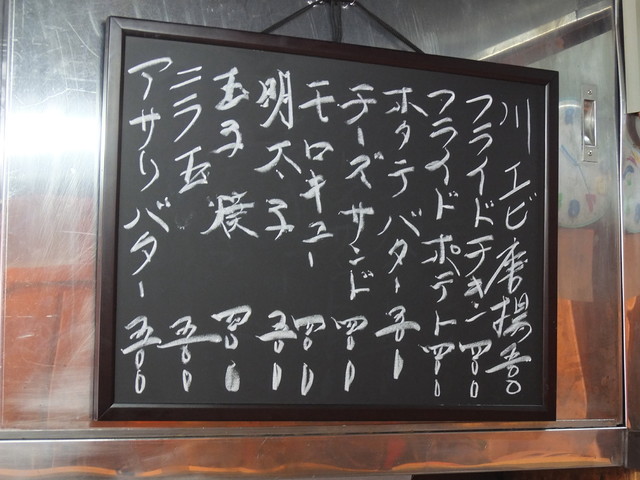 川エビ唐揚 五〇〇
フライドチキン 四〇〇
フライドポテト 四〇〇
ホタテバター 五〇〇
チーズサンド 四〇〇
モロキュー 四〇〇
明太子 五〇〇
玉子焼 四〇〇
ニラ玉 五〇〇
アサリバター 五〇〇